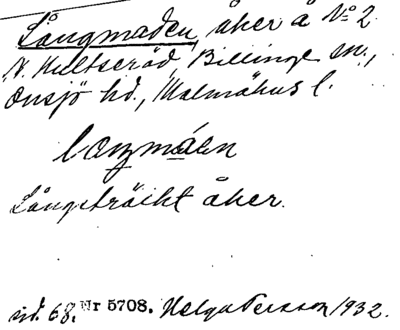 Långmaden, åker å No 2
V. Hultseröd, Billinge sn.,
Onsjö hd., Malmöhus l.
Långsträckt åker.
sid. 68. Nr 5708. Helga Persson 1932.